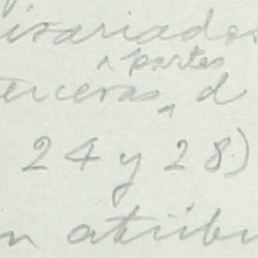 isariados
partes
terceras, d
24 y 28)
n atribu